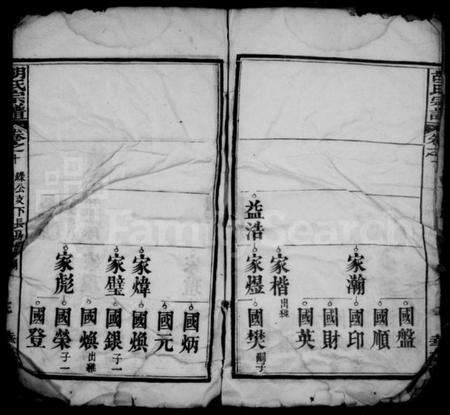 胡氏宗譜
卷之
益浩
家瀚
家楷 出繼
家煜
國盤
國順
國印
國財
國英
國樊 嗣子
家煒
家璧
家彪
國炳
國元
國煥
國銀 子一
國煥 出繼
國榮 子一
國登
胡氏宗譜
卷之十
FamilySearch